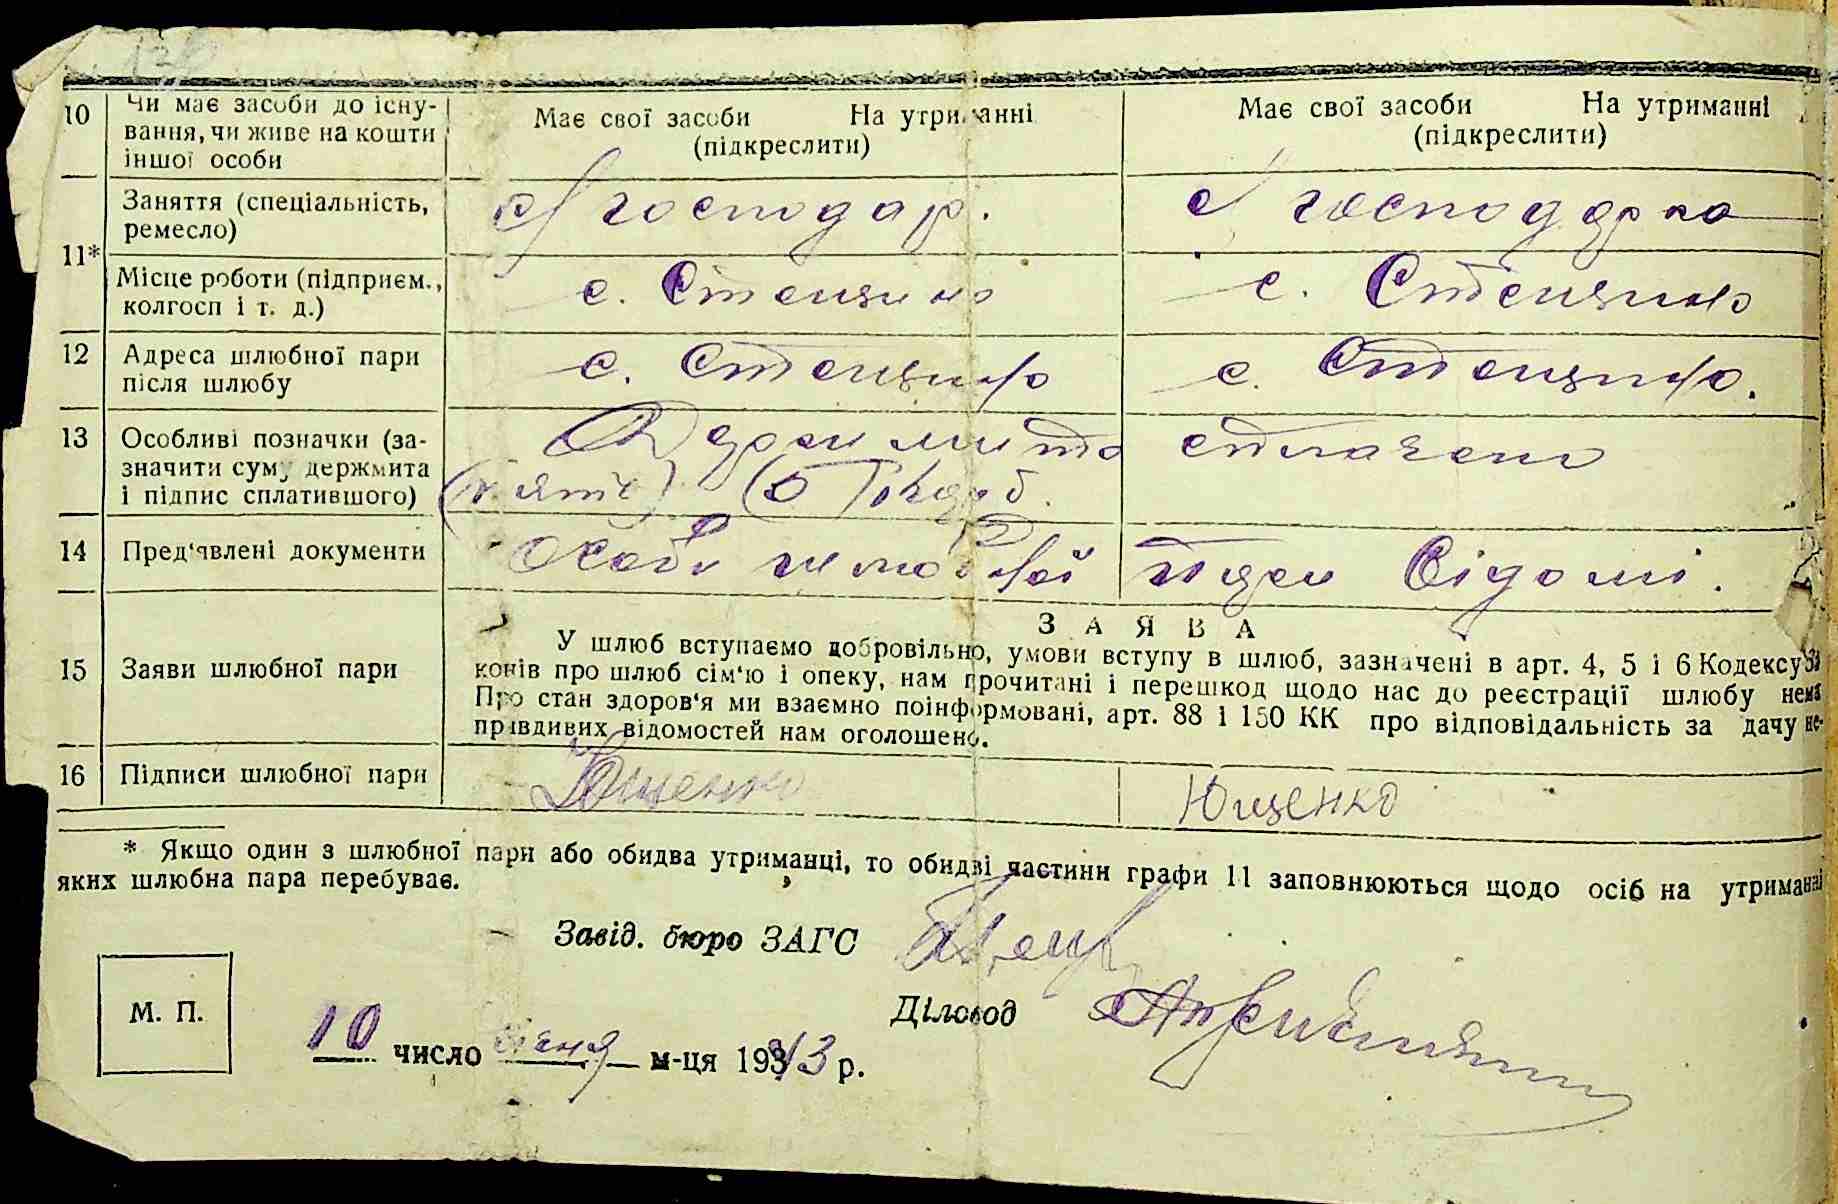 10 Чи має засоби до існу-
вання, чи живе на кошти
іншої особи
Має свої засоби На утриманні
(підкреслити)
Має свої засоби На утриманні
(підкреслити)
11* Заняття (спеціальність,
ремесло)
с/господар.
с/господарка
Місце роботи (підприєм.,
колгосп і т. д.)
с. Стецино
с. Стецино
12 Адреса шлюбної пари
після шлюбу
с. Стецино
с. Стецино.
13 Особливі позначки (за-
значити суму держмита
і підпис сплатившого)
Держмито сплачено
(п'ять) (5) карб.
14 Пред'явлені документи
Особи шлюбної пари відомі.
15 Заяви шлюбної пари
ЗАЯВА
У шлюб вступаємо добровільно, умови вступу в шлюб, зазначені в арт. 4, 5 і 6 Кодексу за-
конів про шлюб сім'ю і опеку, нам прочитані і перешкод щодо нас до реєстрації шлюбу нема
Про стан здоров'я ми взаємно поінформовані, арт. 88 і 150 КК про відповідальність за дачу не-
правдивих відомостей нам оголошено.
16 Підписи шлюбної пари
Ющенко
Ющенко
* Якщо один з шлюбної пари або обидва утриманці, то обидві частини графи 11 заповнюються щодо осіб на утриманні
яких шлюбна пара перебуває.
Завід. бюро ЗАГС
Діловод
М. П.
10 число січня м-ця 1943 р.